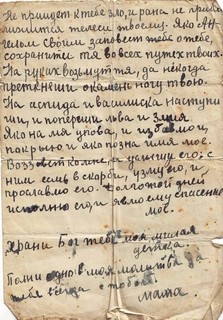 Не приидет к тебе зло, и рана не прибл
ижится телеси твоему. Яко Ан-
гелом Своим заповест тебе о тебе,
сохранити тя во всех путех твоих.
На руках возьмут тя, да некогда
преткнеши о камень ногу твою.
На аспида и василиска наступи-
ши, и попереши льва и змия
Яко на мя упова, и избавлю и,
покрыю и яко позна имя мое.
Воззовет ко мне, и услышу его; с
ним есмь в скорби, узму его, и
прославлю его. Долготой дней
исполню его, и явлю ему спасение
мое.
Храни Бог тебя моя милая
детка.
Помни одно моя молитва да
тебя всегда с тобой.
Мама